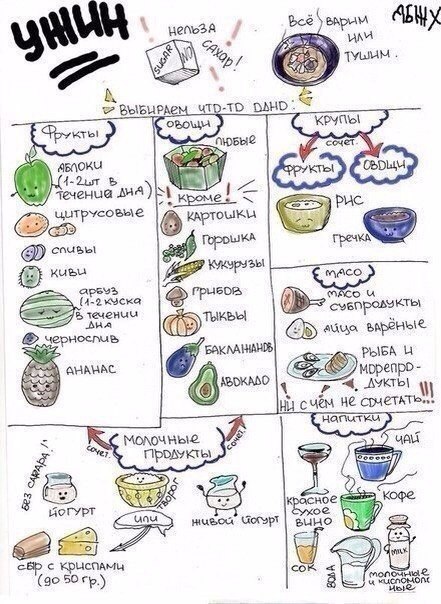 УЖИН
НЕЛЬЗЯ
САХАР!
SUGAR
NO
ВСЁ ВАРИМ
ИЛИ
ТУШИМ.
АБЖХ
ВЫБИРАЕМ ЧТО-ТО ОДНО:
ФРУКТЫ
ЯБЛОКИ
(1-2ШТ В
ТЕЧЕНИИ ДНЯ)
ЦИТРУСОВЫЕ
СЛИВЫ
КИВИ
АРБУЗ
(1-2 КУСКА
В ТЕЧЕНИИ
ДНЯ
ЧЕРНОСЛИВ
АНАНАС
ОВОЩИ
ЛЮБЫЕ
! КРОМЕ !
КАРТОШКИ
ГОРОШКА
КУКУРУЗЫ
ГРИБОВ
ТЫКВЫ
БАКЛАЖАНОВ
АВОКАДО
КРУПЫ
СОЧЕТ.
ФРУКТЫ
ОВОЩИ
РИС
ГРЕЧКА
МЯСО
МЯСО И
СУБПРОДУКТЫ
ЯЙЦА ВАРЁНЫЕ
РЫБА И
МОРЕПРО-
ДУКТЫ
НИ С ЧЕМ НЕ СОЧЕТАТЬ!!!
МОЛОЧНЫЕ
ПРОДУКТЫ
СОЧЕТ.
СОЧЕТ.
БЕЗ САХАРА!
ЙОГУРТ
ТВОРОГ
ИЛИ
ЖИВОЙ ЙОГУРТ
СЫР С КРИСПАМИ
(ДО 50 ГР.)
НАПИТКИ
ЧАЙ
КРАСНОЕ
СУХОЕ
ВИНО
КОФЕ
СОК
ВОДА
MILK
МОЛОЧНЫЕ
И КИСЛОМОЛОЧ
НЫЕ